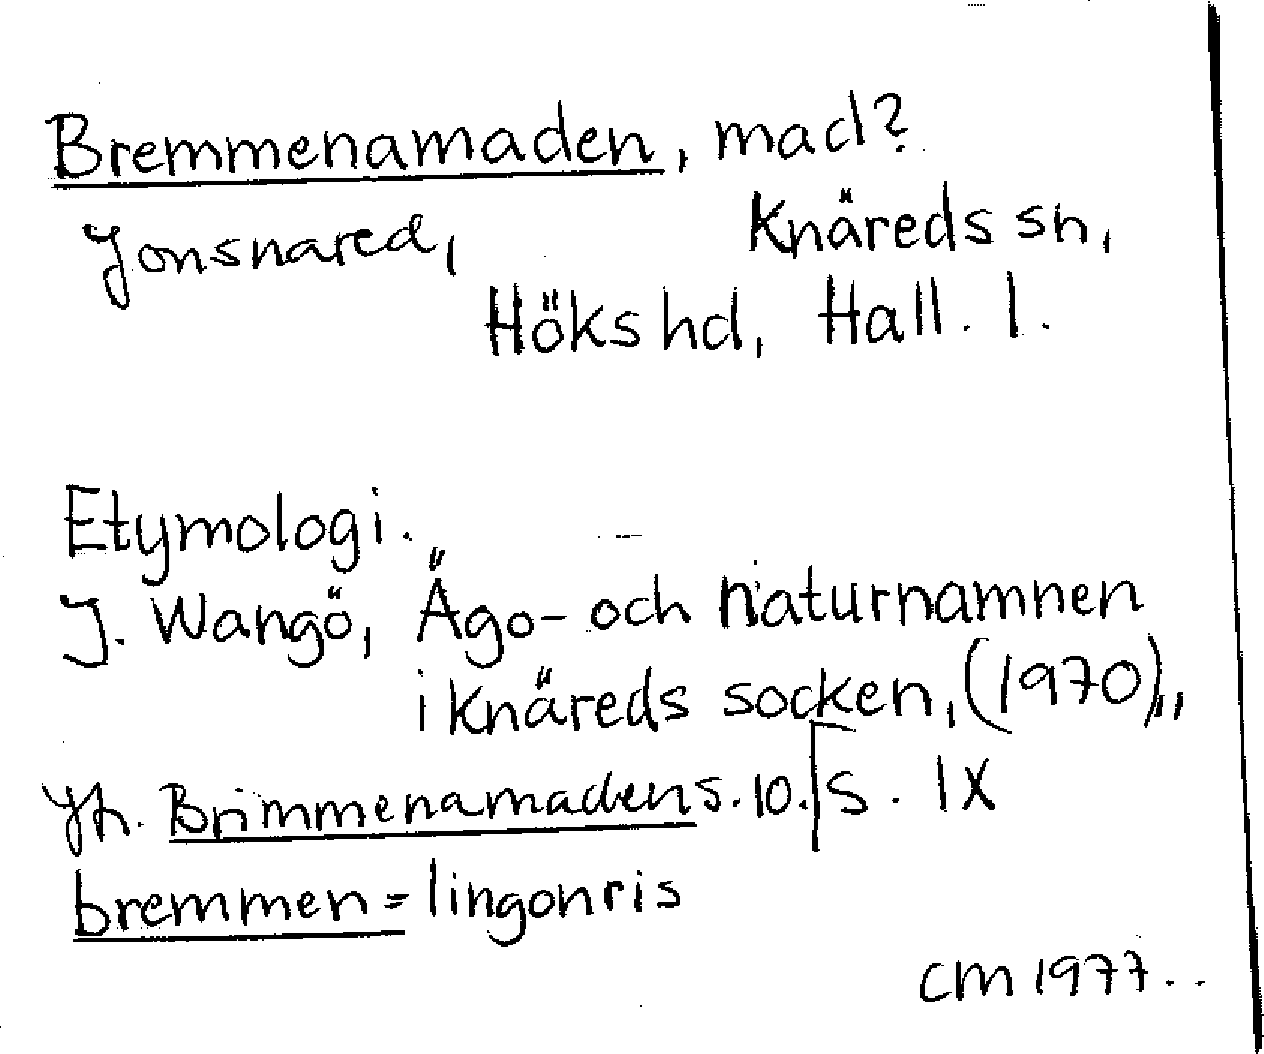 Bremmenamaden, mad?
Jonsnared, Knäreds sn,
Höks hd, Hall. l.
Etymologi.
J. Wangö, Ägo- och naturnamnen
i Knäreds socken, (1970),,
Jfr. Brimmenamaden s. 10. S. IX
bremmen = lingonris
CM 1977.